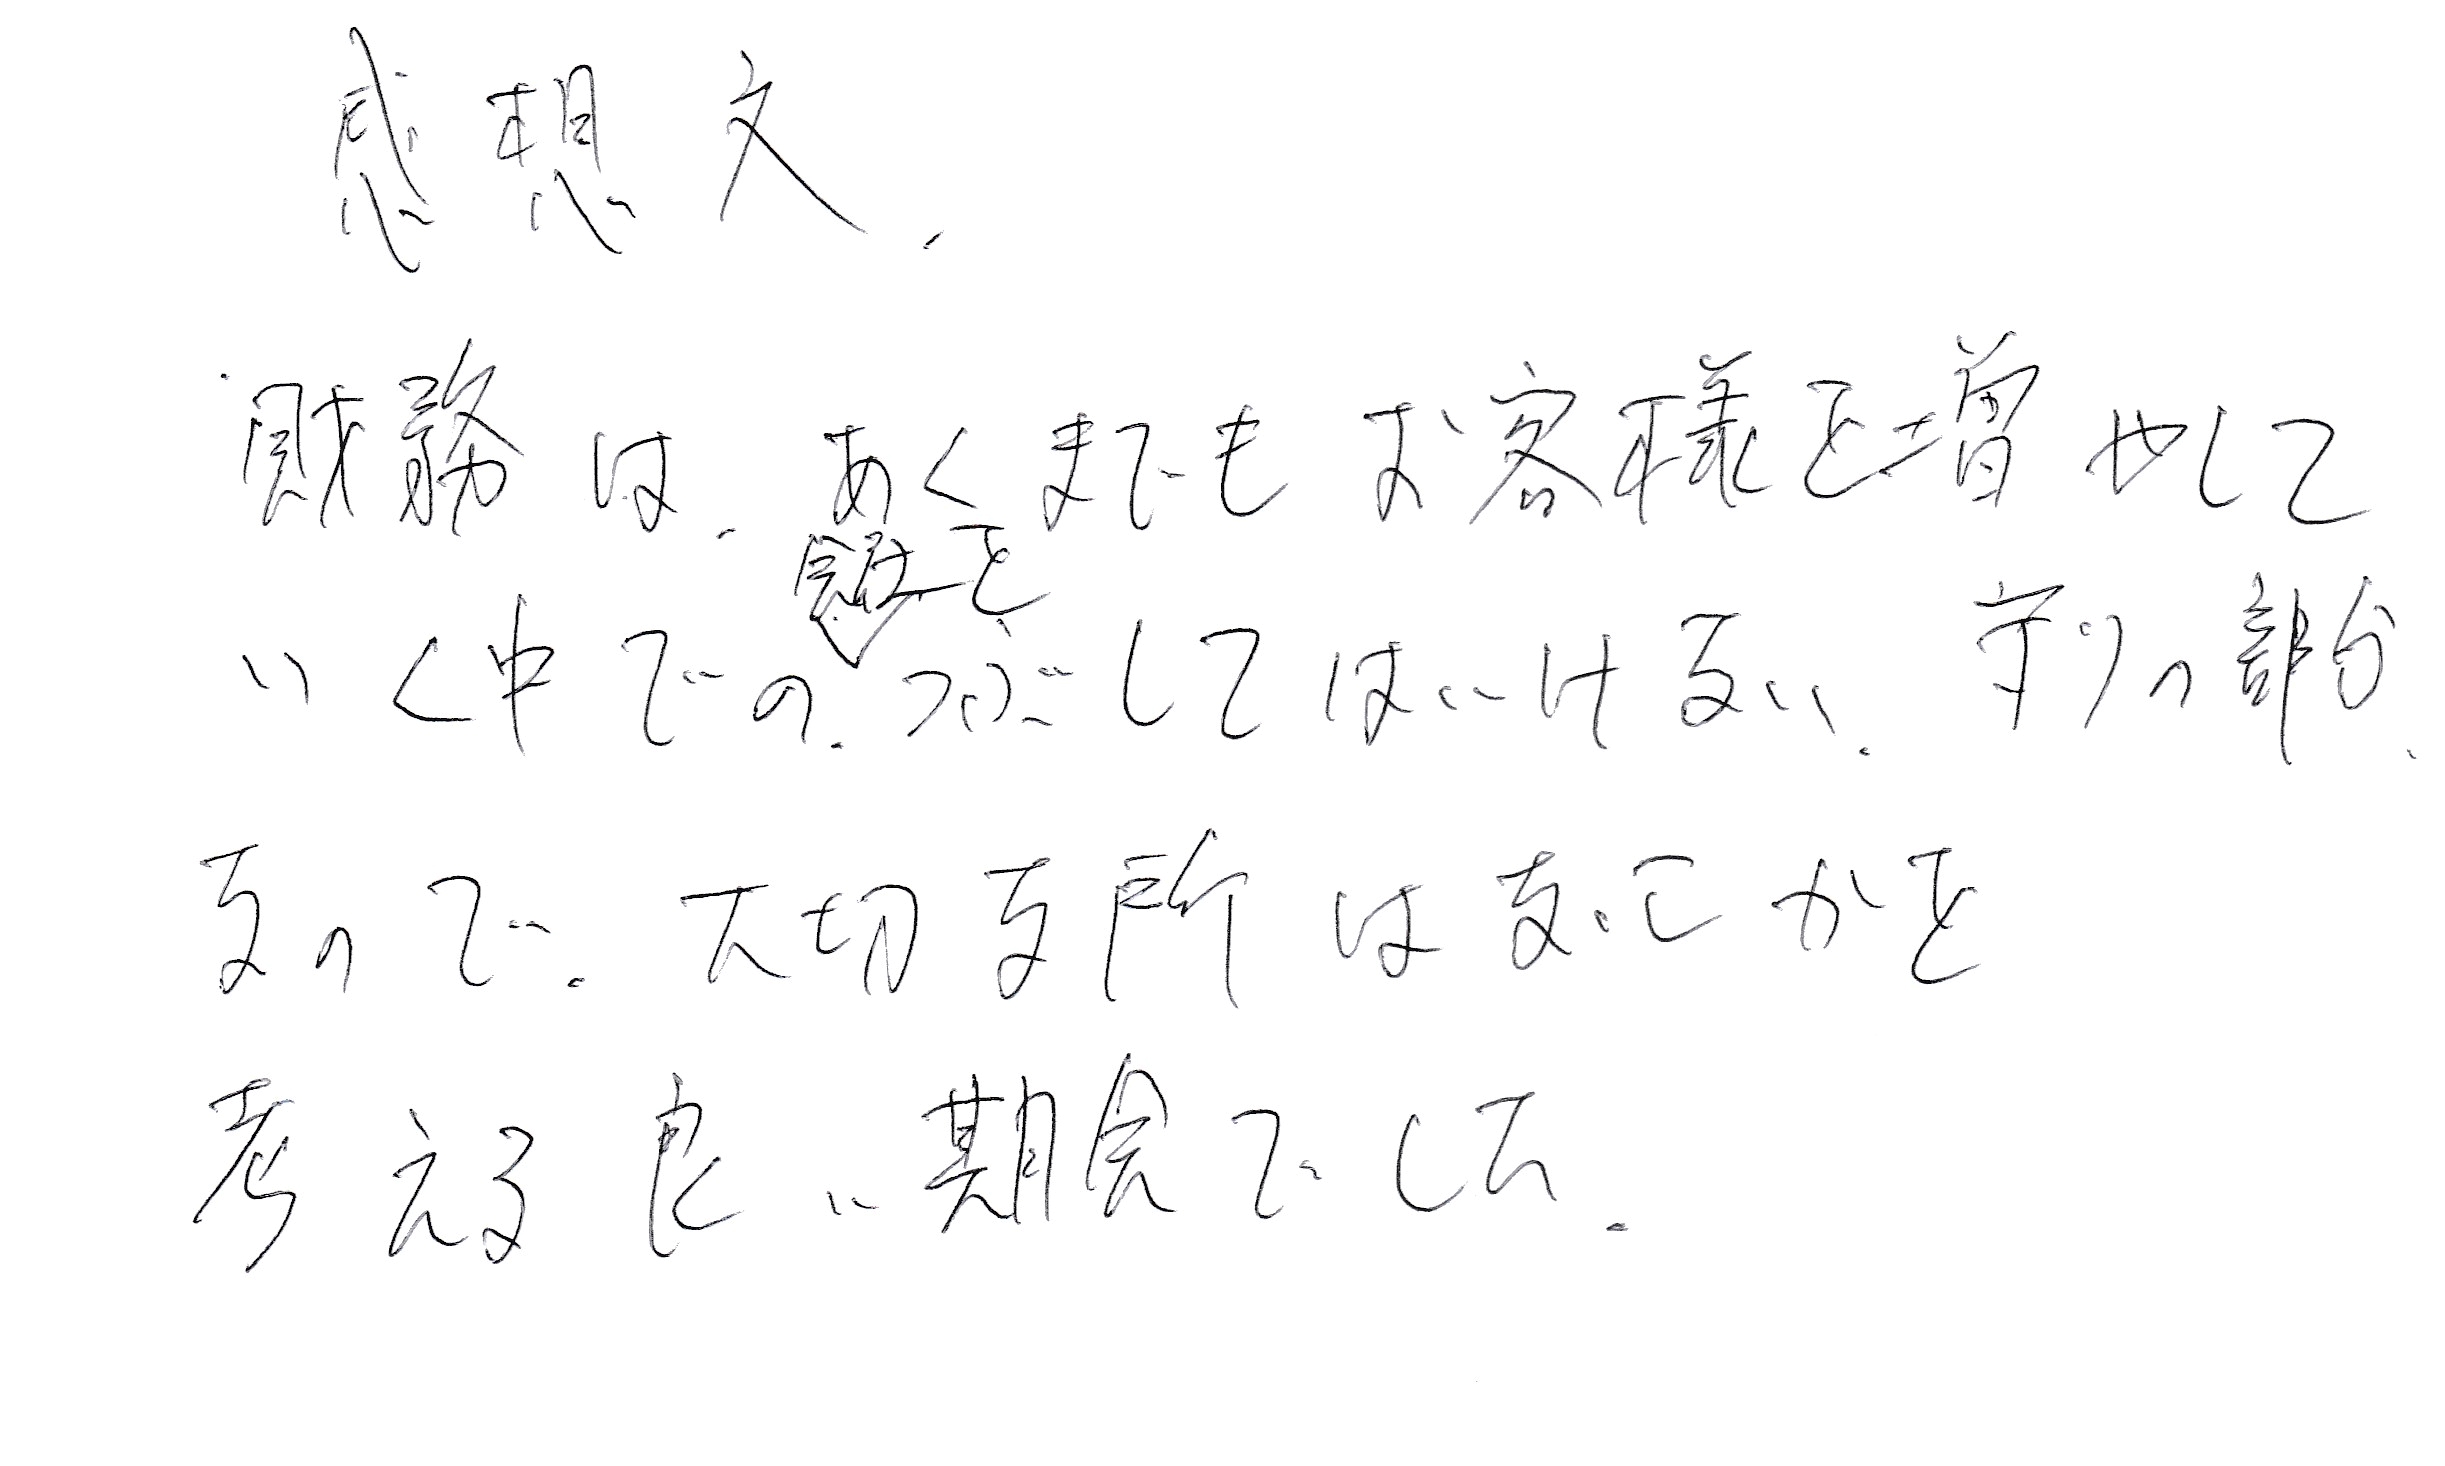 感想文.
財務は、あくまでもお客様を増やして
いく中での、を つぶしてはいけない、守りの部分、
なので、大切な所はなにかを
考える良い期会でした.